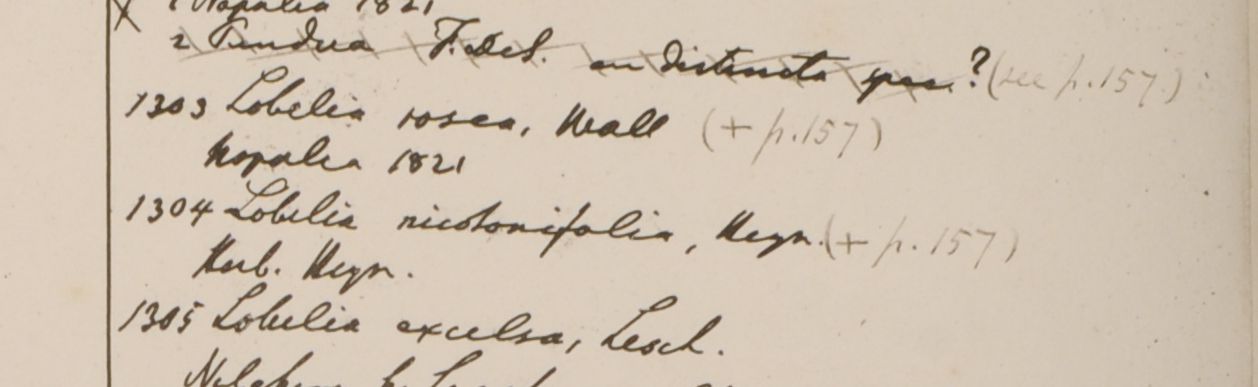 1 Napalia 1821
2 Pundua F. Des. an distincta spec.? (see p.157)
1303 Lobelia rosea, Wall (+ p.157)
Napalia 1821
1304 Lobelia nicotonifolia, Heyn. (+ p.157)
Herb. Heyn.
1305 Lobelia excelsa, Lesch.